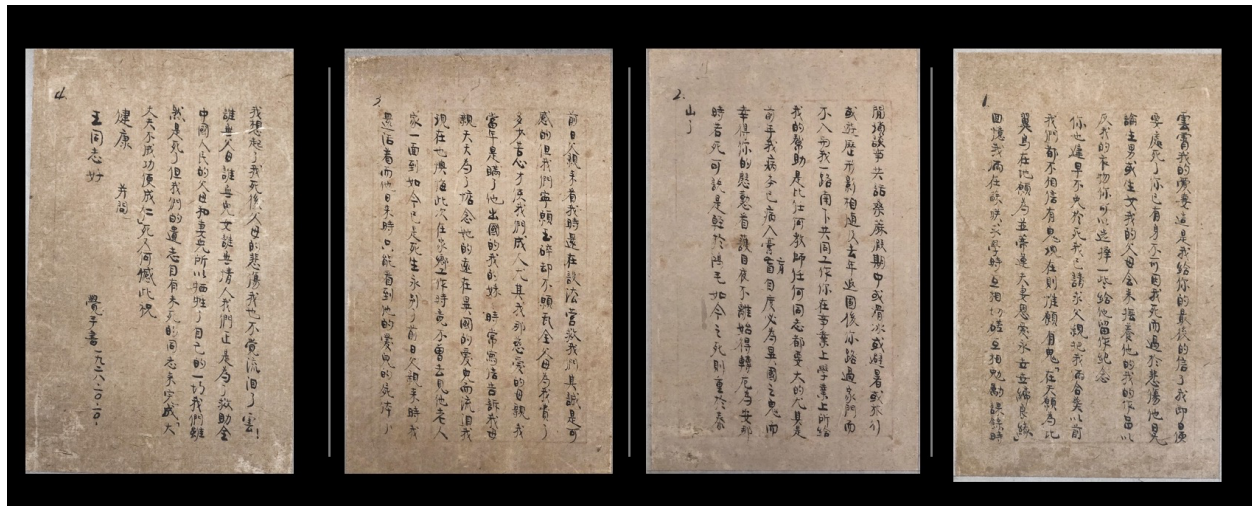 1.
雲霄我的愛妻這是我給你的最後的信了我即日便
要處死了你已有身不可因我死而過於悲傷他日無
論生男或生女我的父母會來撫養他的我的作品以
及我的衣物你可以选擇一些給他留作紀念
你也遲早不免於死我已請求父親把我兩合葬以前
我們都不相信有鬼現在則惟願有鬼「在天願為比
翼鳥在地願為並蒂蓮夫妻恩愛永世世締良緣」
回憶我兩在蘇聯求學時互相切磋互相勉勵課餘時
2.
閒譚琐事共話桑蔴假期中或滑冰或避暑或旅行
或游歷形影相随及去年返囯後你路過家門而
不入与我一路南下共同工作你在事業上學業上所給
我的幫助是比任何教師任何同志都要大的尤其是
前年我病本已病入膏肓自度必為異囯之鬼而
幸得你的慇懃看護日夜不離始得轉危為安那
時若死可說是輕於鴻毛如今之死則重於泰
山了
3
前日父親来看我時還在設法营救我們其誠是可
感的但我們寧願玉碎却不願瓦全父母為我費了
多少苦心才使我們成人尤其我那慈愛的母親我
當年是瞞了他出國的我的妹妹時常寫信告訴我母
親天天為了惦念他的遠在異國的愛兒而流泪我
現在也懊悔此次在家鄉工作時竟不曾去見他老人
家一面到如今已是死生永别了前日父親来時我
還活着而他日来時只能看到他的愛兒的死体了
4.
我想起了我死後父母的悲傷我也不覺流泪了雲!
誰無父母誰無兒女誰無情人我們正是為了救助全
中國人民的父母和妻兒所以牺牲了自己的一切我們雖
然是死了但我們的遺志自有未死的同志来完成「大
丈夫不成功便成仁」死又何憾此祝
健康 并问
王同志好
覺手書 一九二八·一〇·一〇